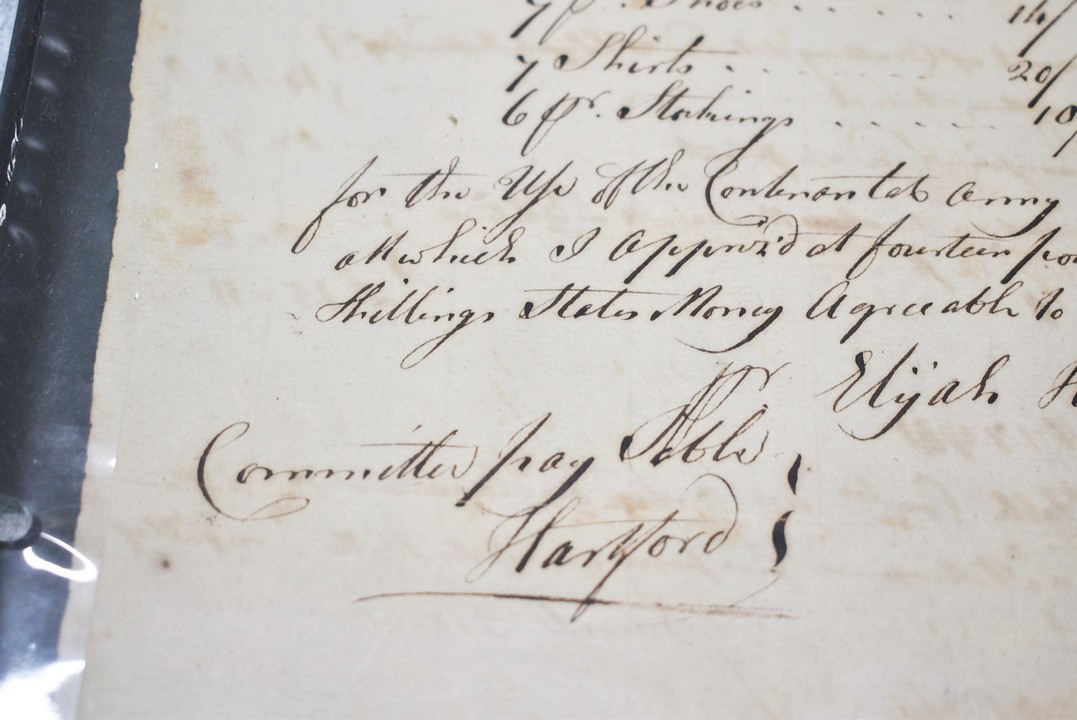 7 pr. Shoes . . . . . . 14/
7 Shirts . . . . . . . 20/
6 pr. Stokings . . . . . . 10
for the Use of the Contenantal Army
all which I Appriz'd at fourteen po
Shillings States Money Agreeable to
pr Elijah H
Committee pay Table
Hartford